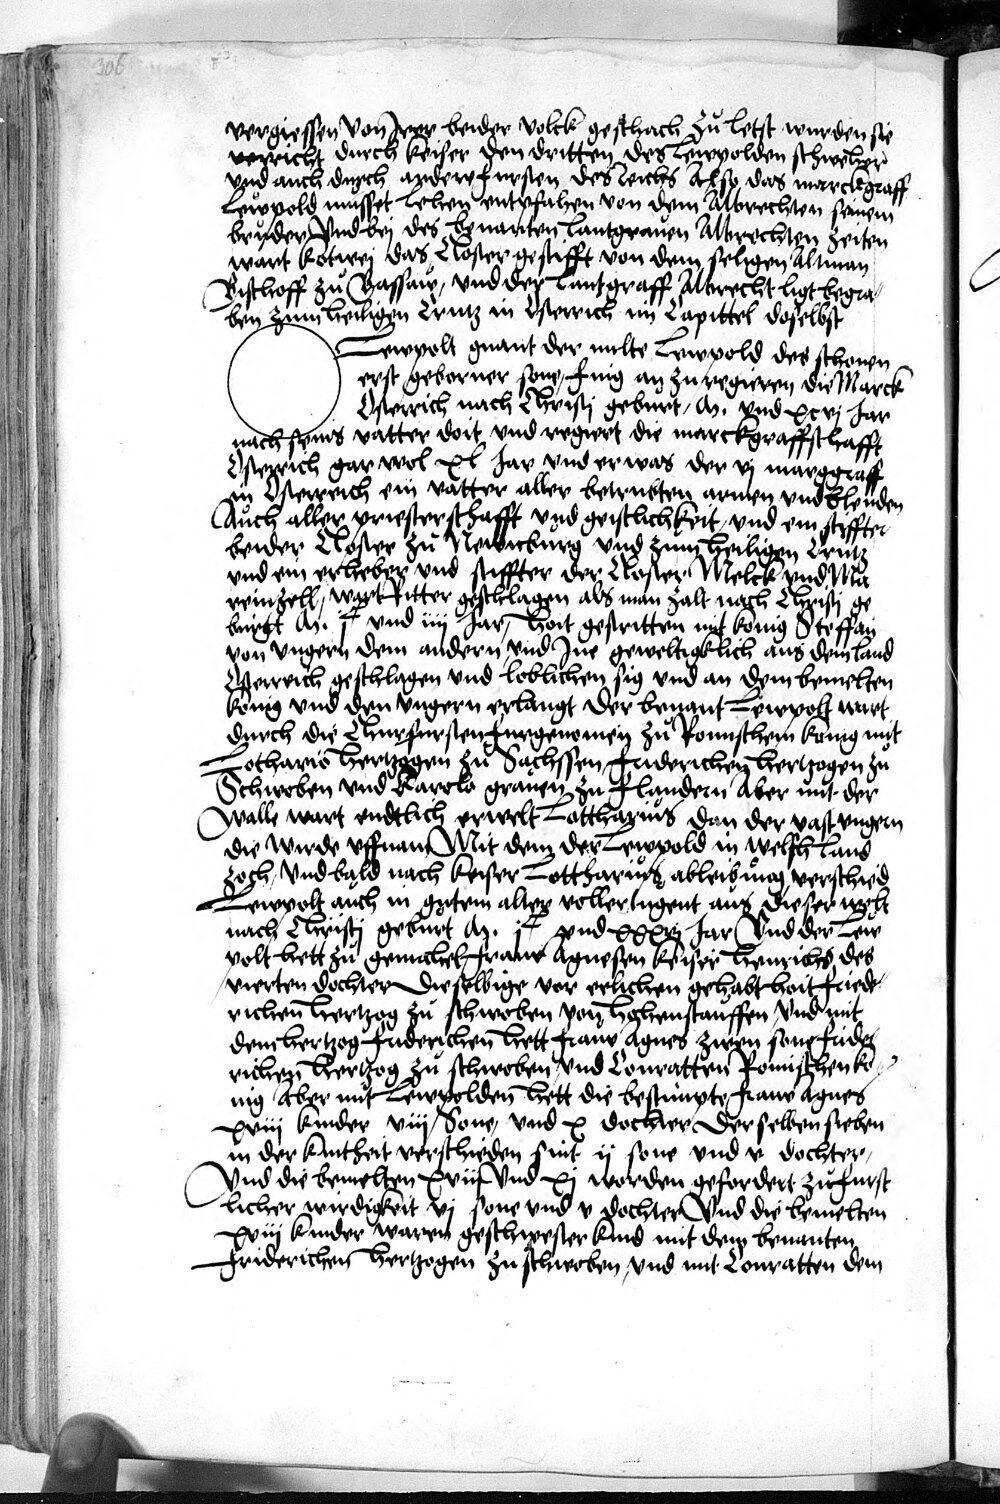 306
vergiessen von Irer beider volck geschach Zů letst wurden sie
verricht durch keiser den dritten des Lewpolden schweher
vnd auch durch andere fursten des Reichs Also das marckgraff
Lewpold musset Lehen entpfahen von dem Albrechten seinem
bruder Vnd bej des benanten Lantgrauen Albrechten Zeiten
wart kotwej das Closter gestifft von dem seligen Altman
Bischoff zů Bassaw, vnd der Lantgraff Albrecht ligt begra
ben zum heiligen Crutz in Osterrich im Capittel doselbst
Lewpolt gnant der milte Lewpold des schonen
erst geborner sone, fing an zu regieren die Marck
Osterrich nach Christj geburt, M. vnd xcvj Jar
nach seins vatter doit vnd regiert die marckgraffschafft
Osterrich gar wol xl Jar vnd er was der vj marggraff
in Osterreich ein vatter aller betrubten armen vnd Elenden
Auch aller priesterschafft vnd geistlichkeit, vnd ein stiffter
beider Closter zů Newenburg vnd zum heiligen Crutz
vnd ein erheber vnd stiffter der Closter Melck vnd Ma
reinzell, wart Ritter geschlagen als man zalt nach Christj ge
burtt M. jc vnd iiij Jar, hoit gestritten mit konig Steffan
von vngern dem andern vnd Jne geweltigklich aus dem land
Osterrich geschlagen vnd loblichen sig vnd an dem bemelten
konig vnd den vngern erlangt Der benant Lewpolt wart
durch die Churfursten furgenomen zů Romischem konig mit
Lothario hertzogen zů Sachssen friderichen hertzogen zů
Schwoben vnd Karolo grauen zu flandern Aber mit der
walle wart endtlich erwelt Lottharius dan der vast vngern
die wirde vffnam Mit dem der Lewpold in welsch land
zoch, Vnd bald nach keiser Lottharius ableibung verschied
Lewpolt auch in gutem alter voller tugent aus dieser welt
nach Christj geburt M. jc vnd xxxvj Jar Vnd der Lew
polt hett zu gemahel frauw Agnesen keiser Heinrichs des
vierten dochter Dieselbige vor erlichen gehabt hoit friede
richen hertzog zů schwoben von hohenstauffen Vnd mit
dem hertzog friderichen hett frauw Agnes zwen sone frider
richen hertzog zů schwoben vnd Conratten Romischen ko
nig Aber mit Lewpolden hett die bestimpte frauw Agnes
xviij kinder viij Sone, vnd x dochter Derselben sieben
in der kintheit verschieden sint ij sone vnd v dochter,
Vnd die bemelten xviij Vnd xj worden gefordert zu furst
licher wirdigkeit vj sone vnd v dochter Vnd die bemelten
xviij kinder waren geschwester kind mit dem benanten
friderichen hertzogen zu schwoben, vnd mit Conratten dem